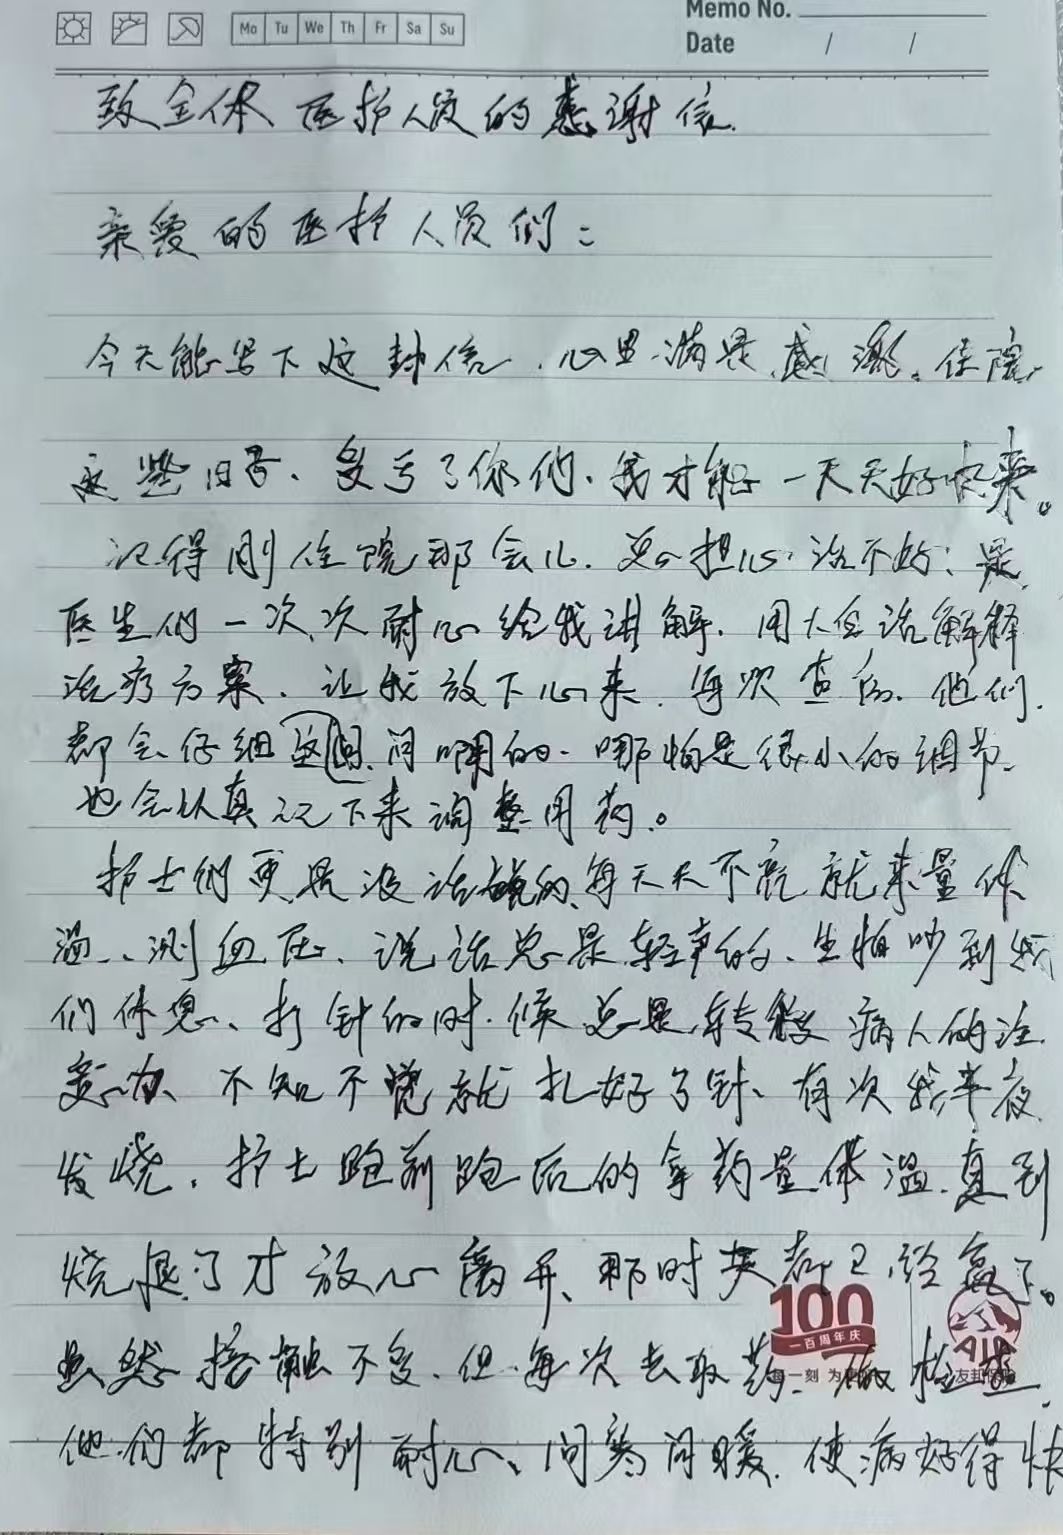 Mo Tu We Th Fr Sa Su
Memo No.
Date / /
致全体医护人员的感谢信.
亲爱的医护人员们:
今天能写下这封信、心里满是感激。住院
这些日子、多亏了你们、我才能一天天好起来。
记得刚住院那会儿、总担心治不好、是
医生们一次次耐心给我讲解、用大白话解释
治疗方案、让我放下心来. 每次查房、他们
都会仔细 问 的、哪怕是很小的细节、
也会认真记下来调整用药。
护士们更是没话说的、每天天不亮就来量体
温、测血压、说话总是轻声的、生怕吵到我
们休息、打针的时候总是转移病人的注
意力、不知不觉就扎好了针、有次我半夜
发烧、护士跑前跑后的拿药量体温、直到
烧退了才放心离开、那时天都已经亮了。
虽然接触不多、但每次去取药、做检查、
他们都特别耐心、问寒问暖. 使病好得快
100
一百周年庆
每一刻 为
AIA
友邦保险